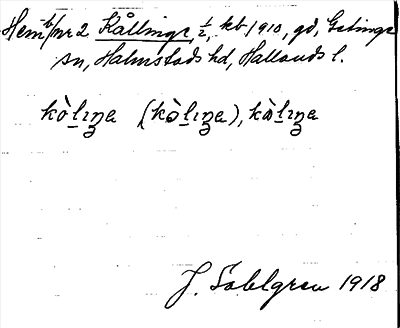 Hem b/nr 2 Kållinge, 1/2, kb 1910, gd, Getinge
sn, Halmstads hd, Hallands l.
kòlıŋa (kòlıŋa), kàlıŋa
J. Sahlgren 1918